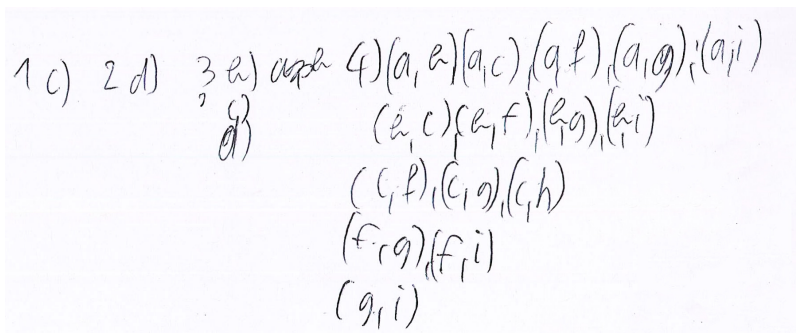 1 c) 2 d) 3 b) 4) (a,b) (a,c), (a,f), (a,g), (a,i)
c) (b,c), (b,f), (b,g), (b,i)
d)
(c,f), (c,g), (c,h)
(f,g), (f,i)
(g,i)